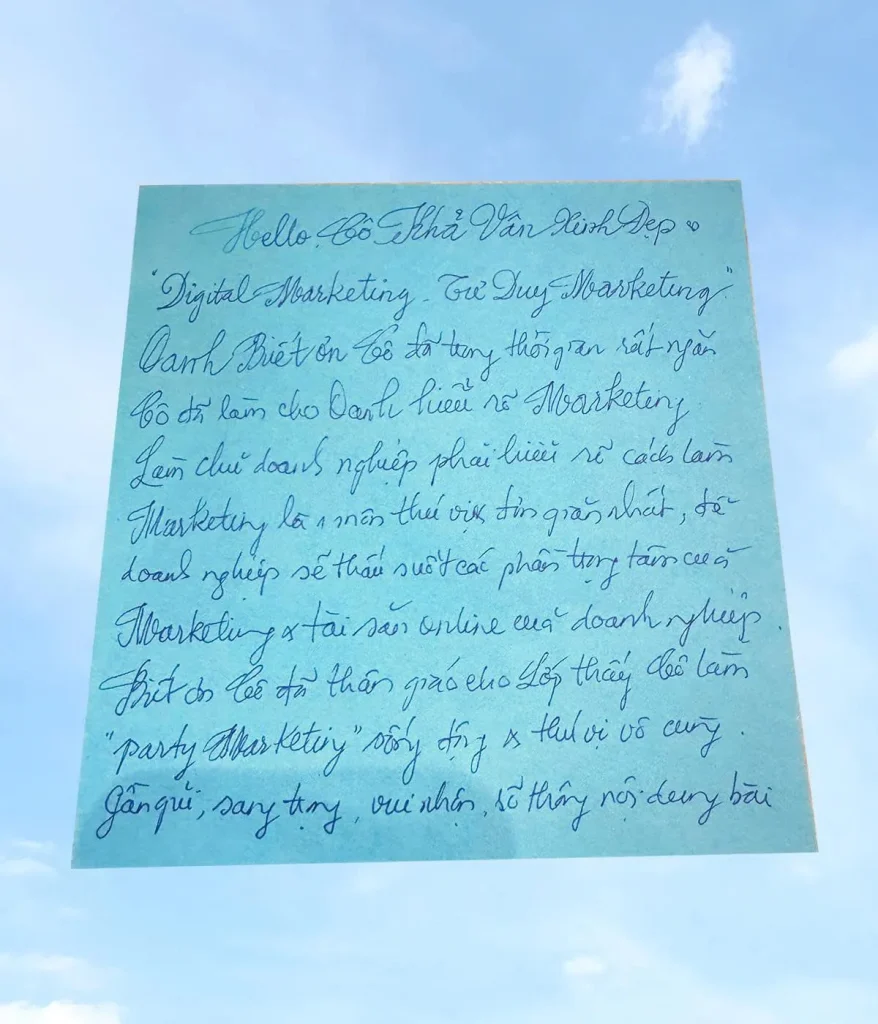 Hello Cô Khả Vân Xinh Đẹp
"Digital Marketing - Tư Duy Marketing"
Oanh Biết ơn Cô đã trong thời gian rất ngắn
Cô đã làm cho Oanh hiểu rõ Marketing
Làm chủ doanh nghiệp phải hiểu rõ cách làm
Marketing là 1 môn thú vị & đơn giản nhất, để
doanh nghiệp sẽ thấu suốt các phần trọng tâm của
Marketing & tài sản online của doanh nghiệp.
Biết ơn Cô đã thân giáo cho Lớp thấy Cô làm
"party Marketing" sống động & thú vị vô cùng.
Gần gũi, sang trọng, vui nhộn, hệ thống nội dung bài